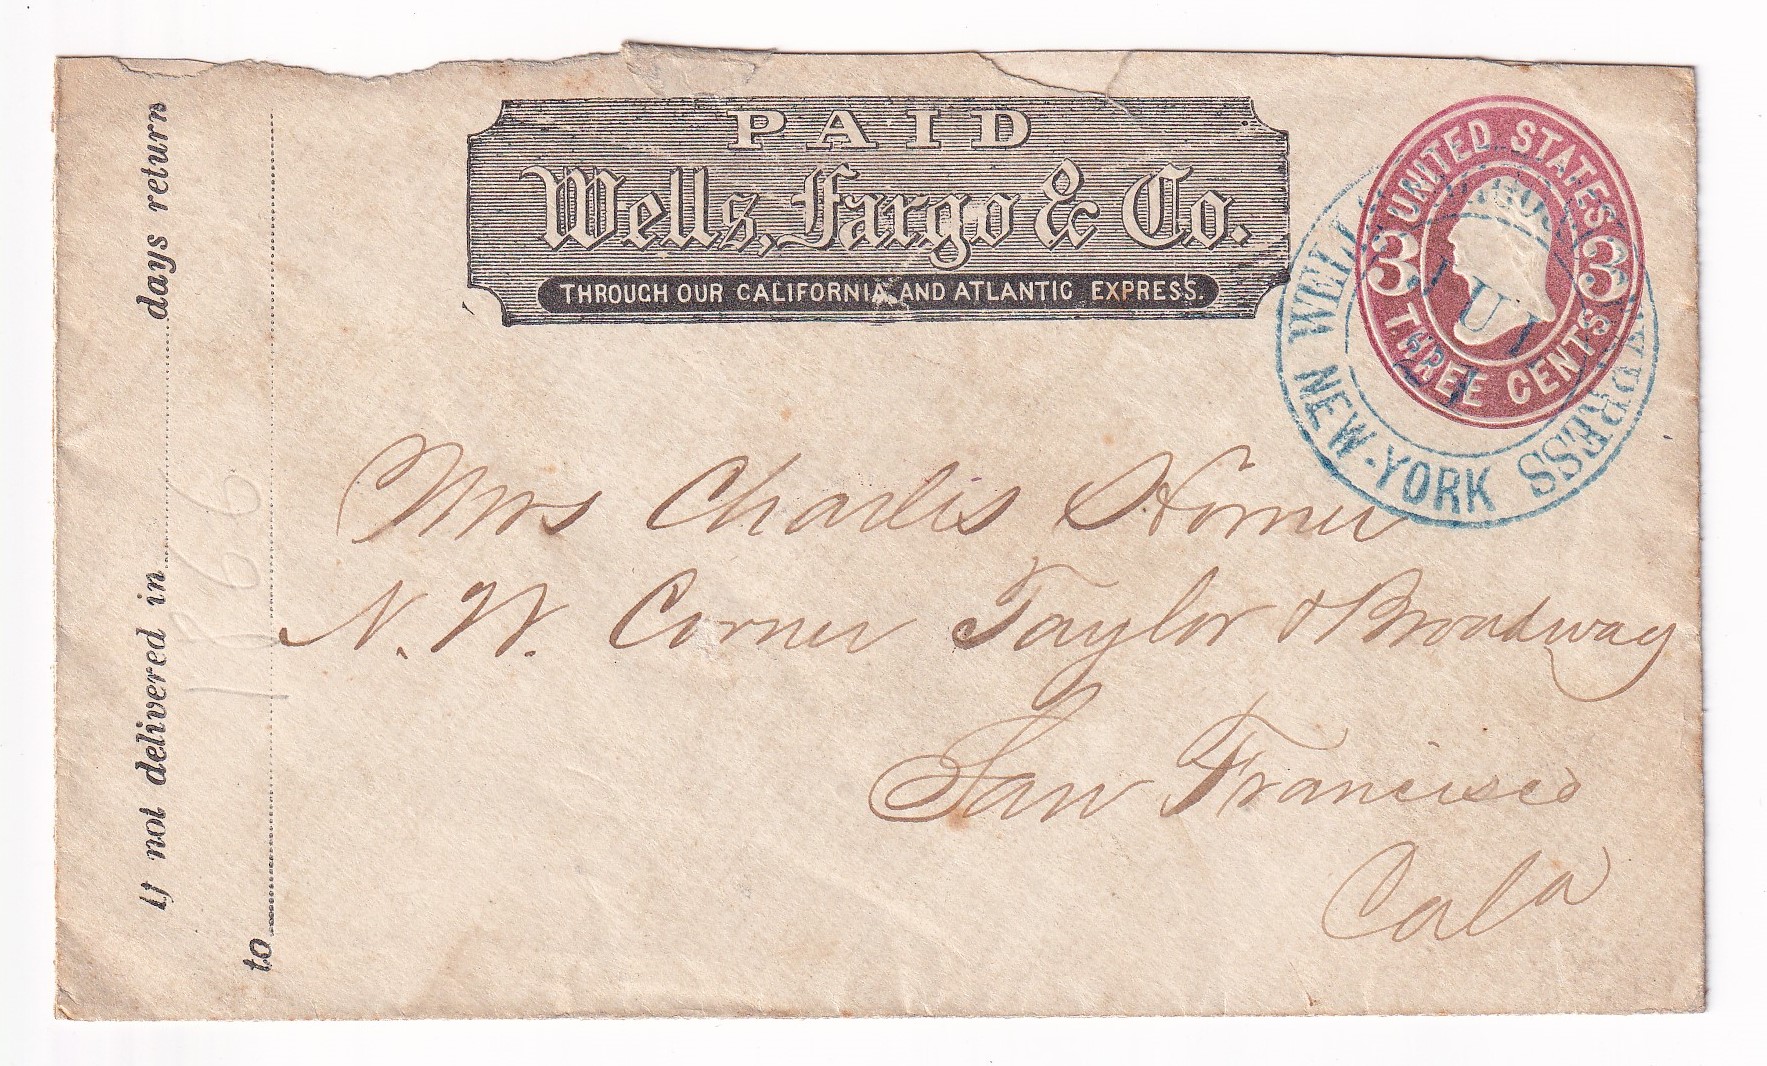 PAID
Wells, Fargo & Co.
THROUGH OUR CALIFORNIA AND ATLANTIC EXPRESS.
UNITED STATES
3 3
THREE CENTS
WELLS EXPRESS
NEW-YORK
JUL
21
If not delivered in days return
to
1866
Mrs Charlis Horner
N. W. Corner Taylor & Broadway
San Francisco
Cala